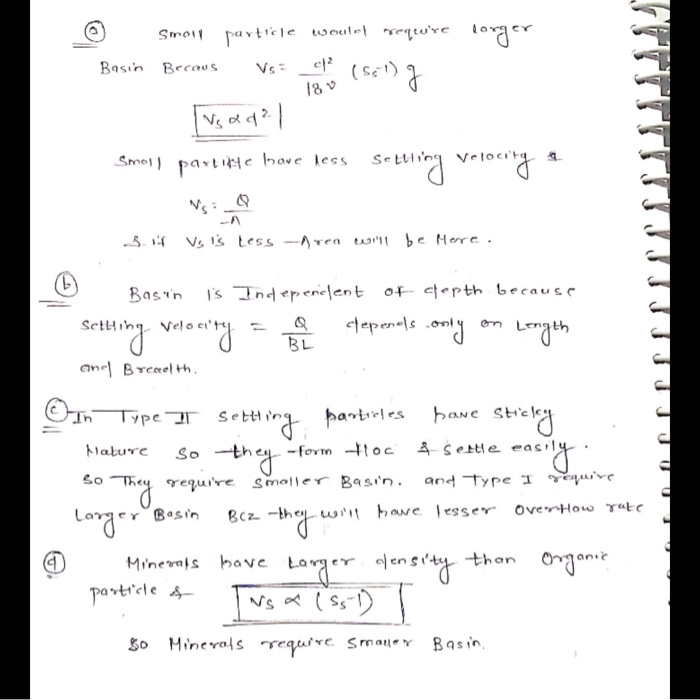 (a) Small particle would require larger
Basin Becaus Vs = d²/18ν (Ss-1) g
Vs ∝ d²
Small particle have less settling velocity &
Vs = Q/A
& if Vs is Less Area will be More.
(b) Basin is Independent of depth because
settling velocity = Q/BL depends only on Length
and Breadth.
(c) In Type II settling particles have sticky
Nature so they form floc & settle easily.
So They require smaller Basin. and Type I require
Larger Basin BCZ they will have lesser overflow rate
(d) Minerals have Larger density than Organic
particle &
Vs ∝ (Ss-1)
So Minerals require smaller Basin.